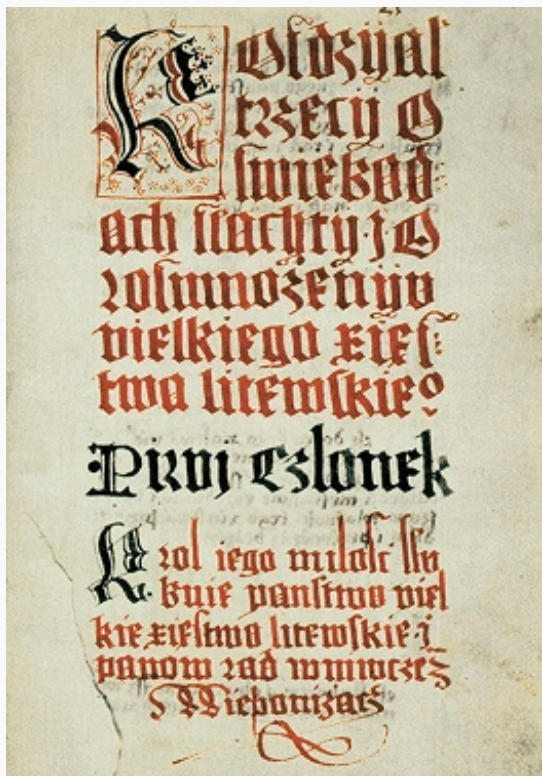 ROſdzÿal
trzeciÿ O
ſwiebod=
ach ſlachtÿ J O
roſmnożenÿv
vielkiego xięſ=
twa litewſkie°
Prvj Czlonek
Krol iego miloſc ſlu
buie panſtwo viel
kie xieſtwo litewſkie j
panow rad wniwczez
Nieponizatz